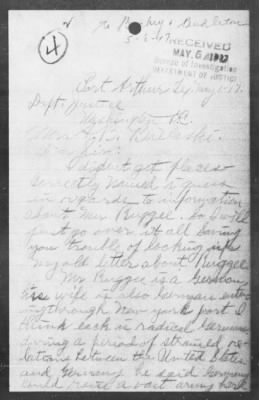 4
to Buckey & Bielaski
5-6-17
RECEIVED
MAY 6 1917
Bureau of Investigation
DEPARTMENT OF JUSTICE
Port Arthur Tex May 1-17.
Dept. Justice
Washington D.C.
Bielaski
Dear Sir:
I didn't get places
correctly named I guess
in regards to information
about Mr. Buggee. So I will
just go over it all saving
you trouble of looking up
my old letter about Buggee.
Mr Buggee is a German,
his wife is also German enter-
ing through New York port I
think each is radical German
during a period of strained re-
lations between the United States
and Germany he said Germany
could raise a vast army here